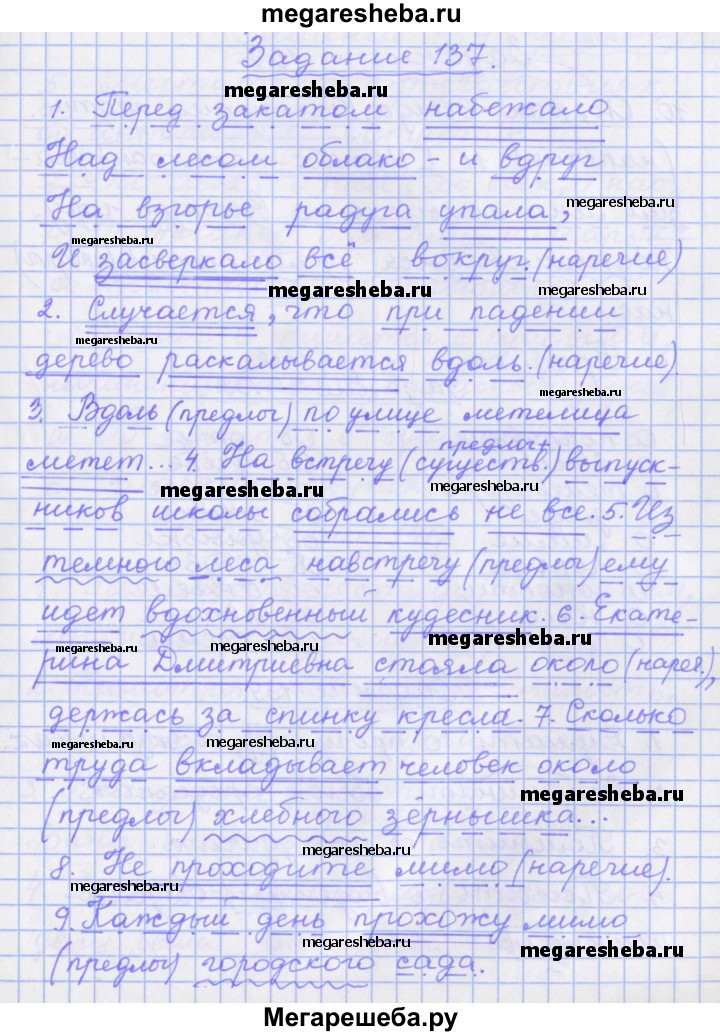 megaresheba.ru
Задание 137.
megaresheba.ru
1. Перед закатом набежало
megaresheba.ru
Над лесом облако - и вдруг
На взгорье радуга упала,
megaresheba.ru
megaresheba.ru
И засверкало всё вокруг. (наречие)
megaresheba.ru
2. Случается, что при падении
megaresheba.ru
дерево раскалывается вдоль. (наречие).
megaresheba.ru
3. Вдоль (предлог) по улице метелица
предлог+
метет... 4. На встречу (существ.) выпуск-
megaresheba.ru
megaresheba.ru
ников школы собрались не все. 5. Из
темного леса навстречу (предлог) ему
идет вдохновенный кудесник. 6. Екате-
megaresheba.ru
megaresheba.ru
megaresheba.ru
рина Дмитриевна стояла около (нареч.),
держась за спинку кресла. 7. Сколько
megaresheba.ru
megaresheba.ru
труда вкладывает человек около
megaresheba.ru
(предлог) хлебного зёрнышка...
megaresheba.ru
8. Не проходите мимо (наречие).
megaresheba.ru
9. Каждый день прохожу мимо
megaresheba.ru
megaresheba.ru
(предлог) городского сада.
Мегарешеба.ру